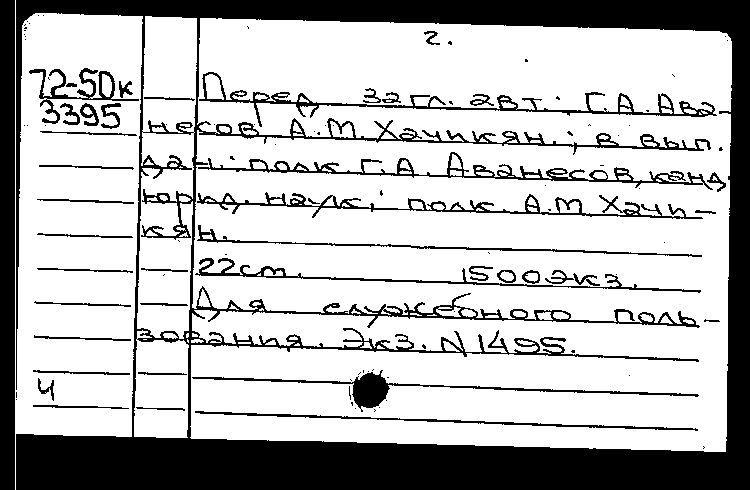 2.
72-50к
3395
Перед загл. авт.: Г.А. Ава-
несов, А.М. Хачикян.; в вып.
дан.: полк. Г.А. Аванесов, канд.
юрид. наук; полк. А.М. Хачи-
кян.
22см. 1500экз.
Для служебного поль-
зования. Экз. N 1495.
Ч